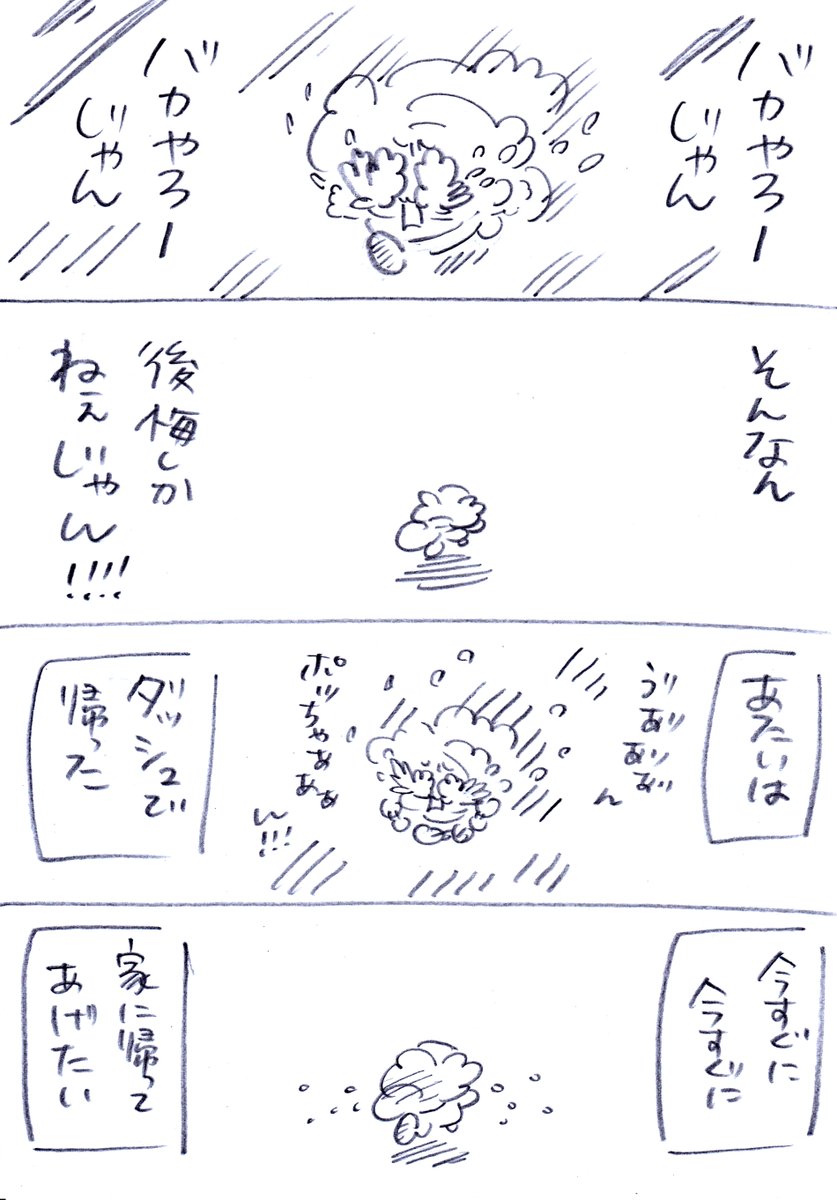 バカやろー
じゃん
バカやろー
じゃん
そんなん
後悔しか
ねぇじゃん!!!!
あたいは
ゔあ゙あ゙あ゙
ん
ポッぢゃああぁ
ん!!!
ダッシュで
帰った
今すぐに
今すぐに
家に帰って
あげたい